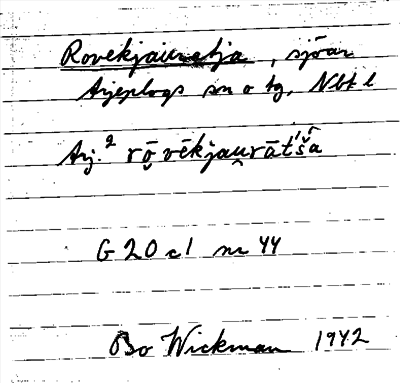 Rovekjauratja, sjöar
Arjeplogs sn o tg, Nbt l
Arj.² rō̮vēkjau̯rāt́š́a
G 20 c l nr 44
Bo Wickman 1942